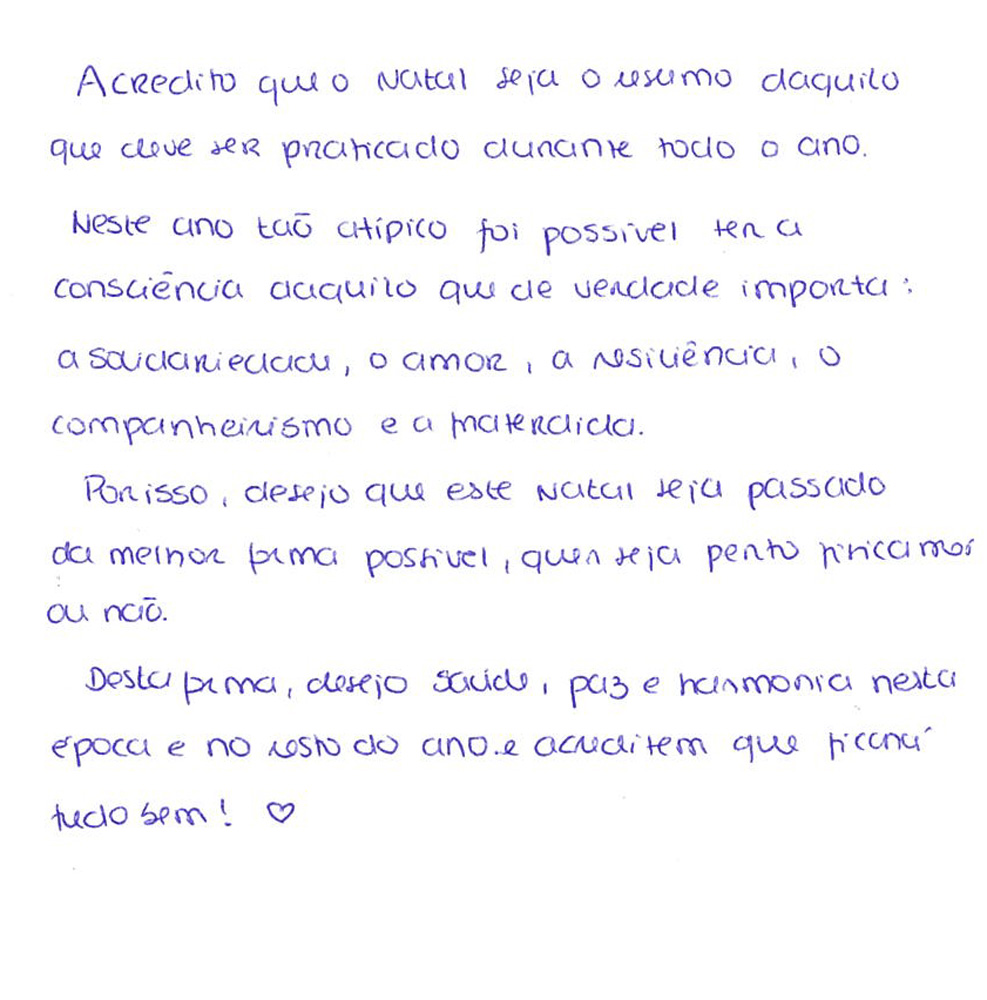 Acredito que o Natal seja o resumo daquilo
que deve ser praticado durante todo o ano.
Neste ano taõ atípico foi possivel ter a
consciência daquilo que de verdade importa:
a solidariedade, o amor, a resiliência, o
companheirismo e a
Por isso, desejo que este Natal seja passado
da melhor forma possivel, quer seja perto fisicamos
ou naõ.
Desta forma, desejo saúde, paz e harmonia nesta
época e no resto do ano. e acreditem que ficará
tudo bem! ♡